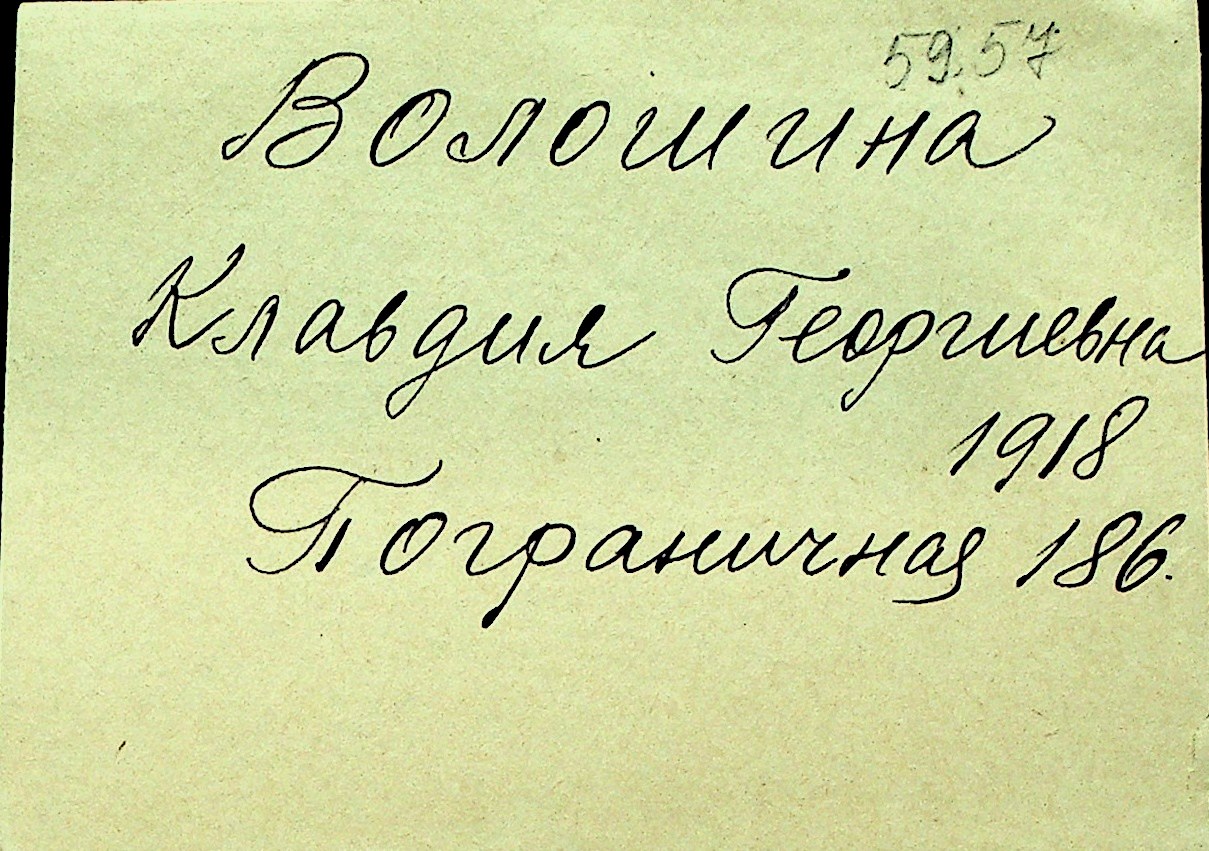 59.57
Волошина
Клавдия Георгиевна
1918
Пограничная 186.